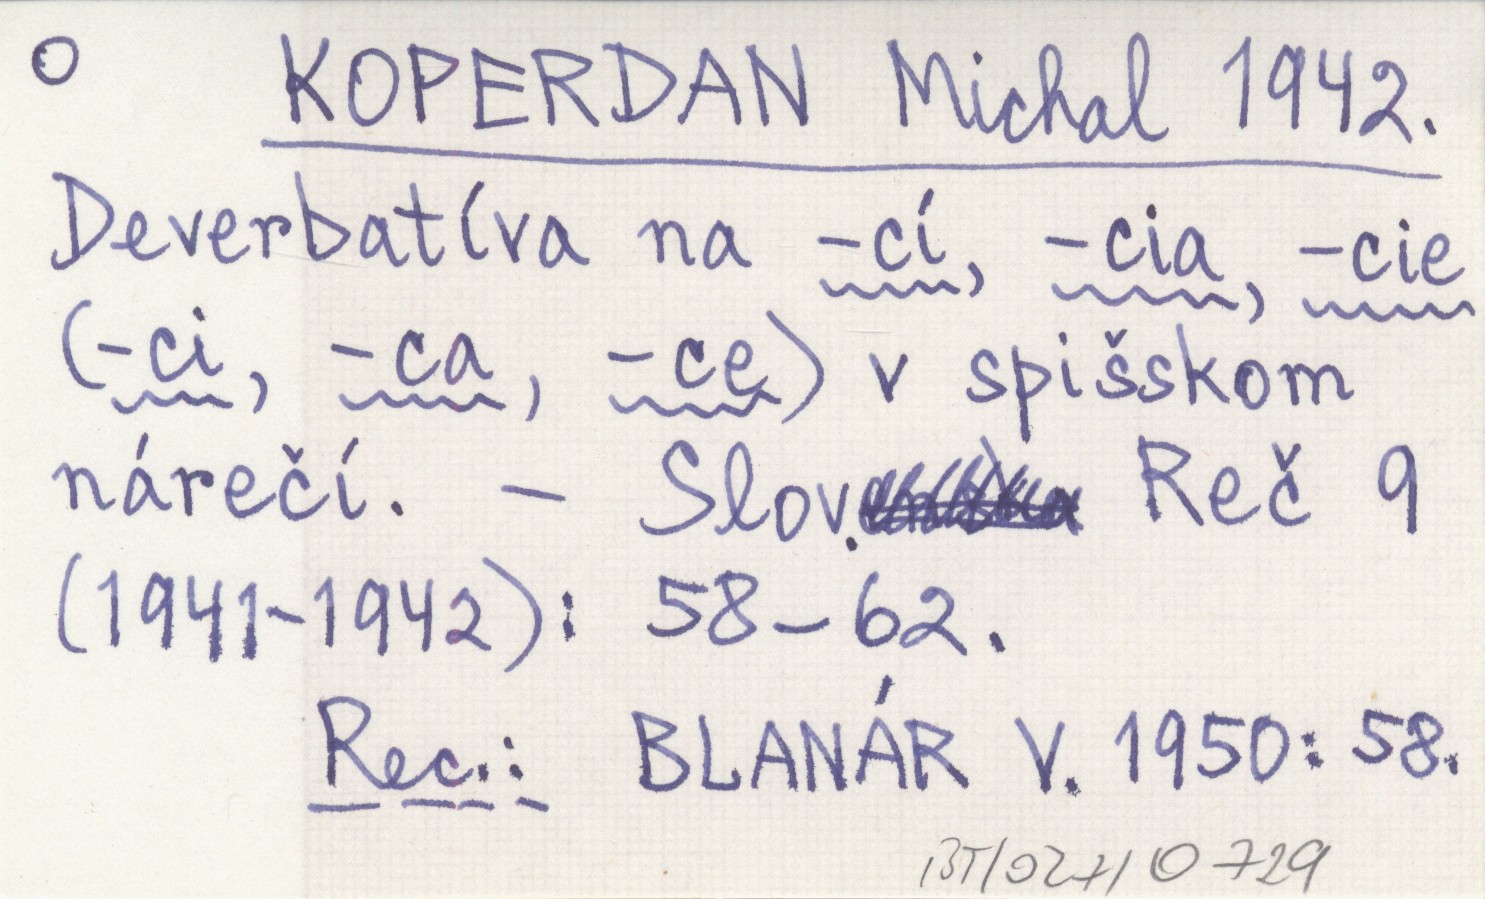 KOPERDAN Michal 1942.
Deverbatíva na -cí, -cia, -cie
(-ci, -ca, -ce) v spišskom
nárečí. - Slov. Reč 9
(1941-1942): 58-62.
Rec.: BLANÁR V. 1950: 58.
BT/027/0729